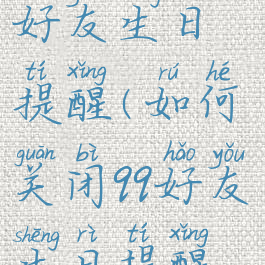 好友生日
tí xǐng rú hé
提醒(如何
guān bì hǎo yǒu
关闭99好友
shēng rì tí xǐng
生日提醒